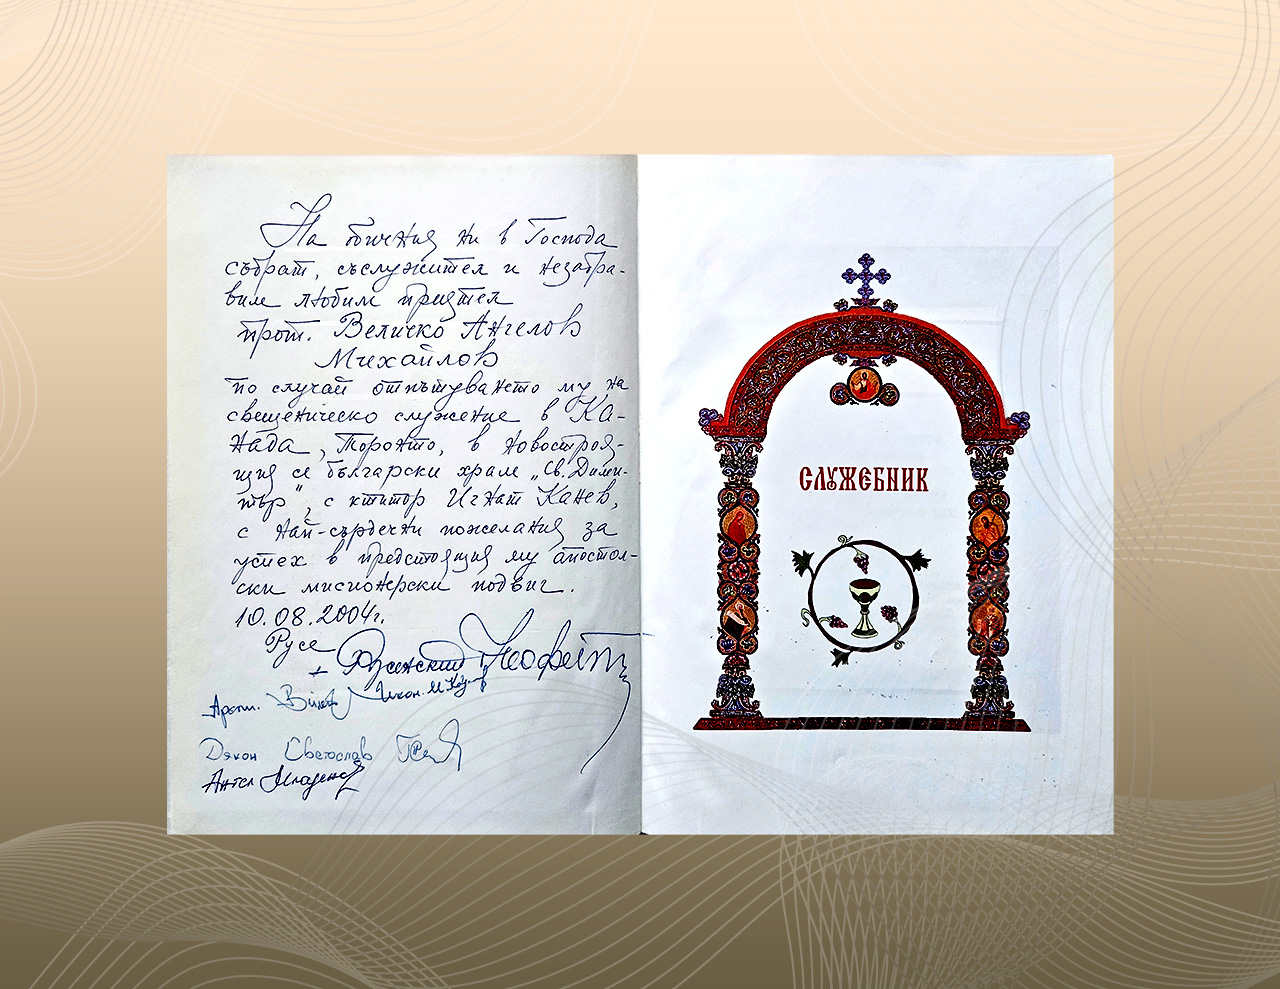 На обичния ни в Господа
събрат, съслужител и незабра-
вим любим приятел
прот. Величко Ангелов
Михайлов
по случай отпътуването му на
свещеническо служение в Ка-
нада, Торонто, в новостроя-
щия се български храм „Св. Дими-
тър", с ктитор Игнат Канев,
с най-сърдечни пожелания за
успех в предстоящия му апостол-
ски мисионерски подвиг.
10.08.2004г.
Русе
+ Русенски Неофит
Дякон Светослав
Ангел Младенов
СЛУЖЕБНИК